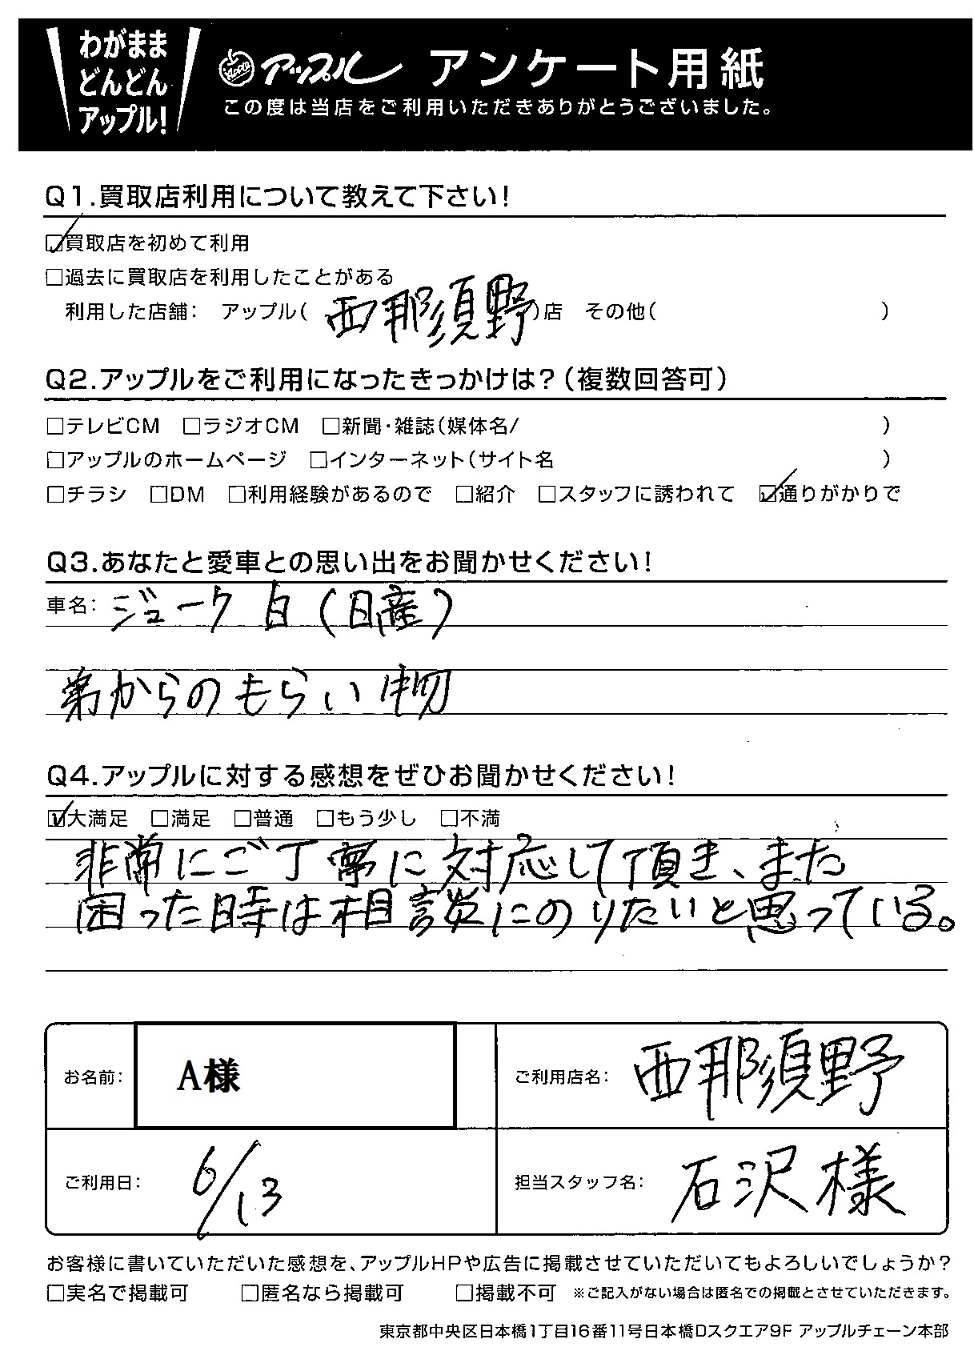 わがまま
どんどん
アップル!
アップル アンケート用紙
この度は当店をご利用いただきありがとうございました。
Q1.買取店利用について教えて下さい!
☑買取店を初めて利用
□過去に買取店を利用したことがある
利用した店舗: アップル( 西那須野 )店 その他( )
Q2.アップルをご利用になったきっかけは?(複数回答可)
□テレビCM □ラジオCM □新聞・雑誌(媒体名/ )
□アップルのホームページ □インターネット(サイト名 )
□チラシ □DM □利用経験があるので □紹介 □スタッフに誘われて ☑通りがかりで
Q3.あなたと愛車との思い出をお聞かせください!
車名: ジューク 白 (日産)
弟からのもらい物
Q4.アップルに対する感想をぜひお聞かせください!
☑大満足 □満足 □普通 □もう少し □不満
非常にご丁寧に対応して頂き、また
困った時は相談にのりたいと思っている。
お名前: A様
ご利用店名: 西那須野
ご利用日: 6/13
担当スタッフ名: 石沢様
お客様に書いていただいた感想を、アップルHPや広告に掲載させていただいてもよろしいでしょうか?
□実名で掲載可 □匿名なら掲載可 □掲載不可 ※ご記入がない場合は匿名での掲載とさせていただきます。
東京都中央区日本橋1丁目16番11号日本橋Dスクエア9F アップルチェーン本部